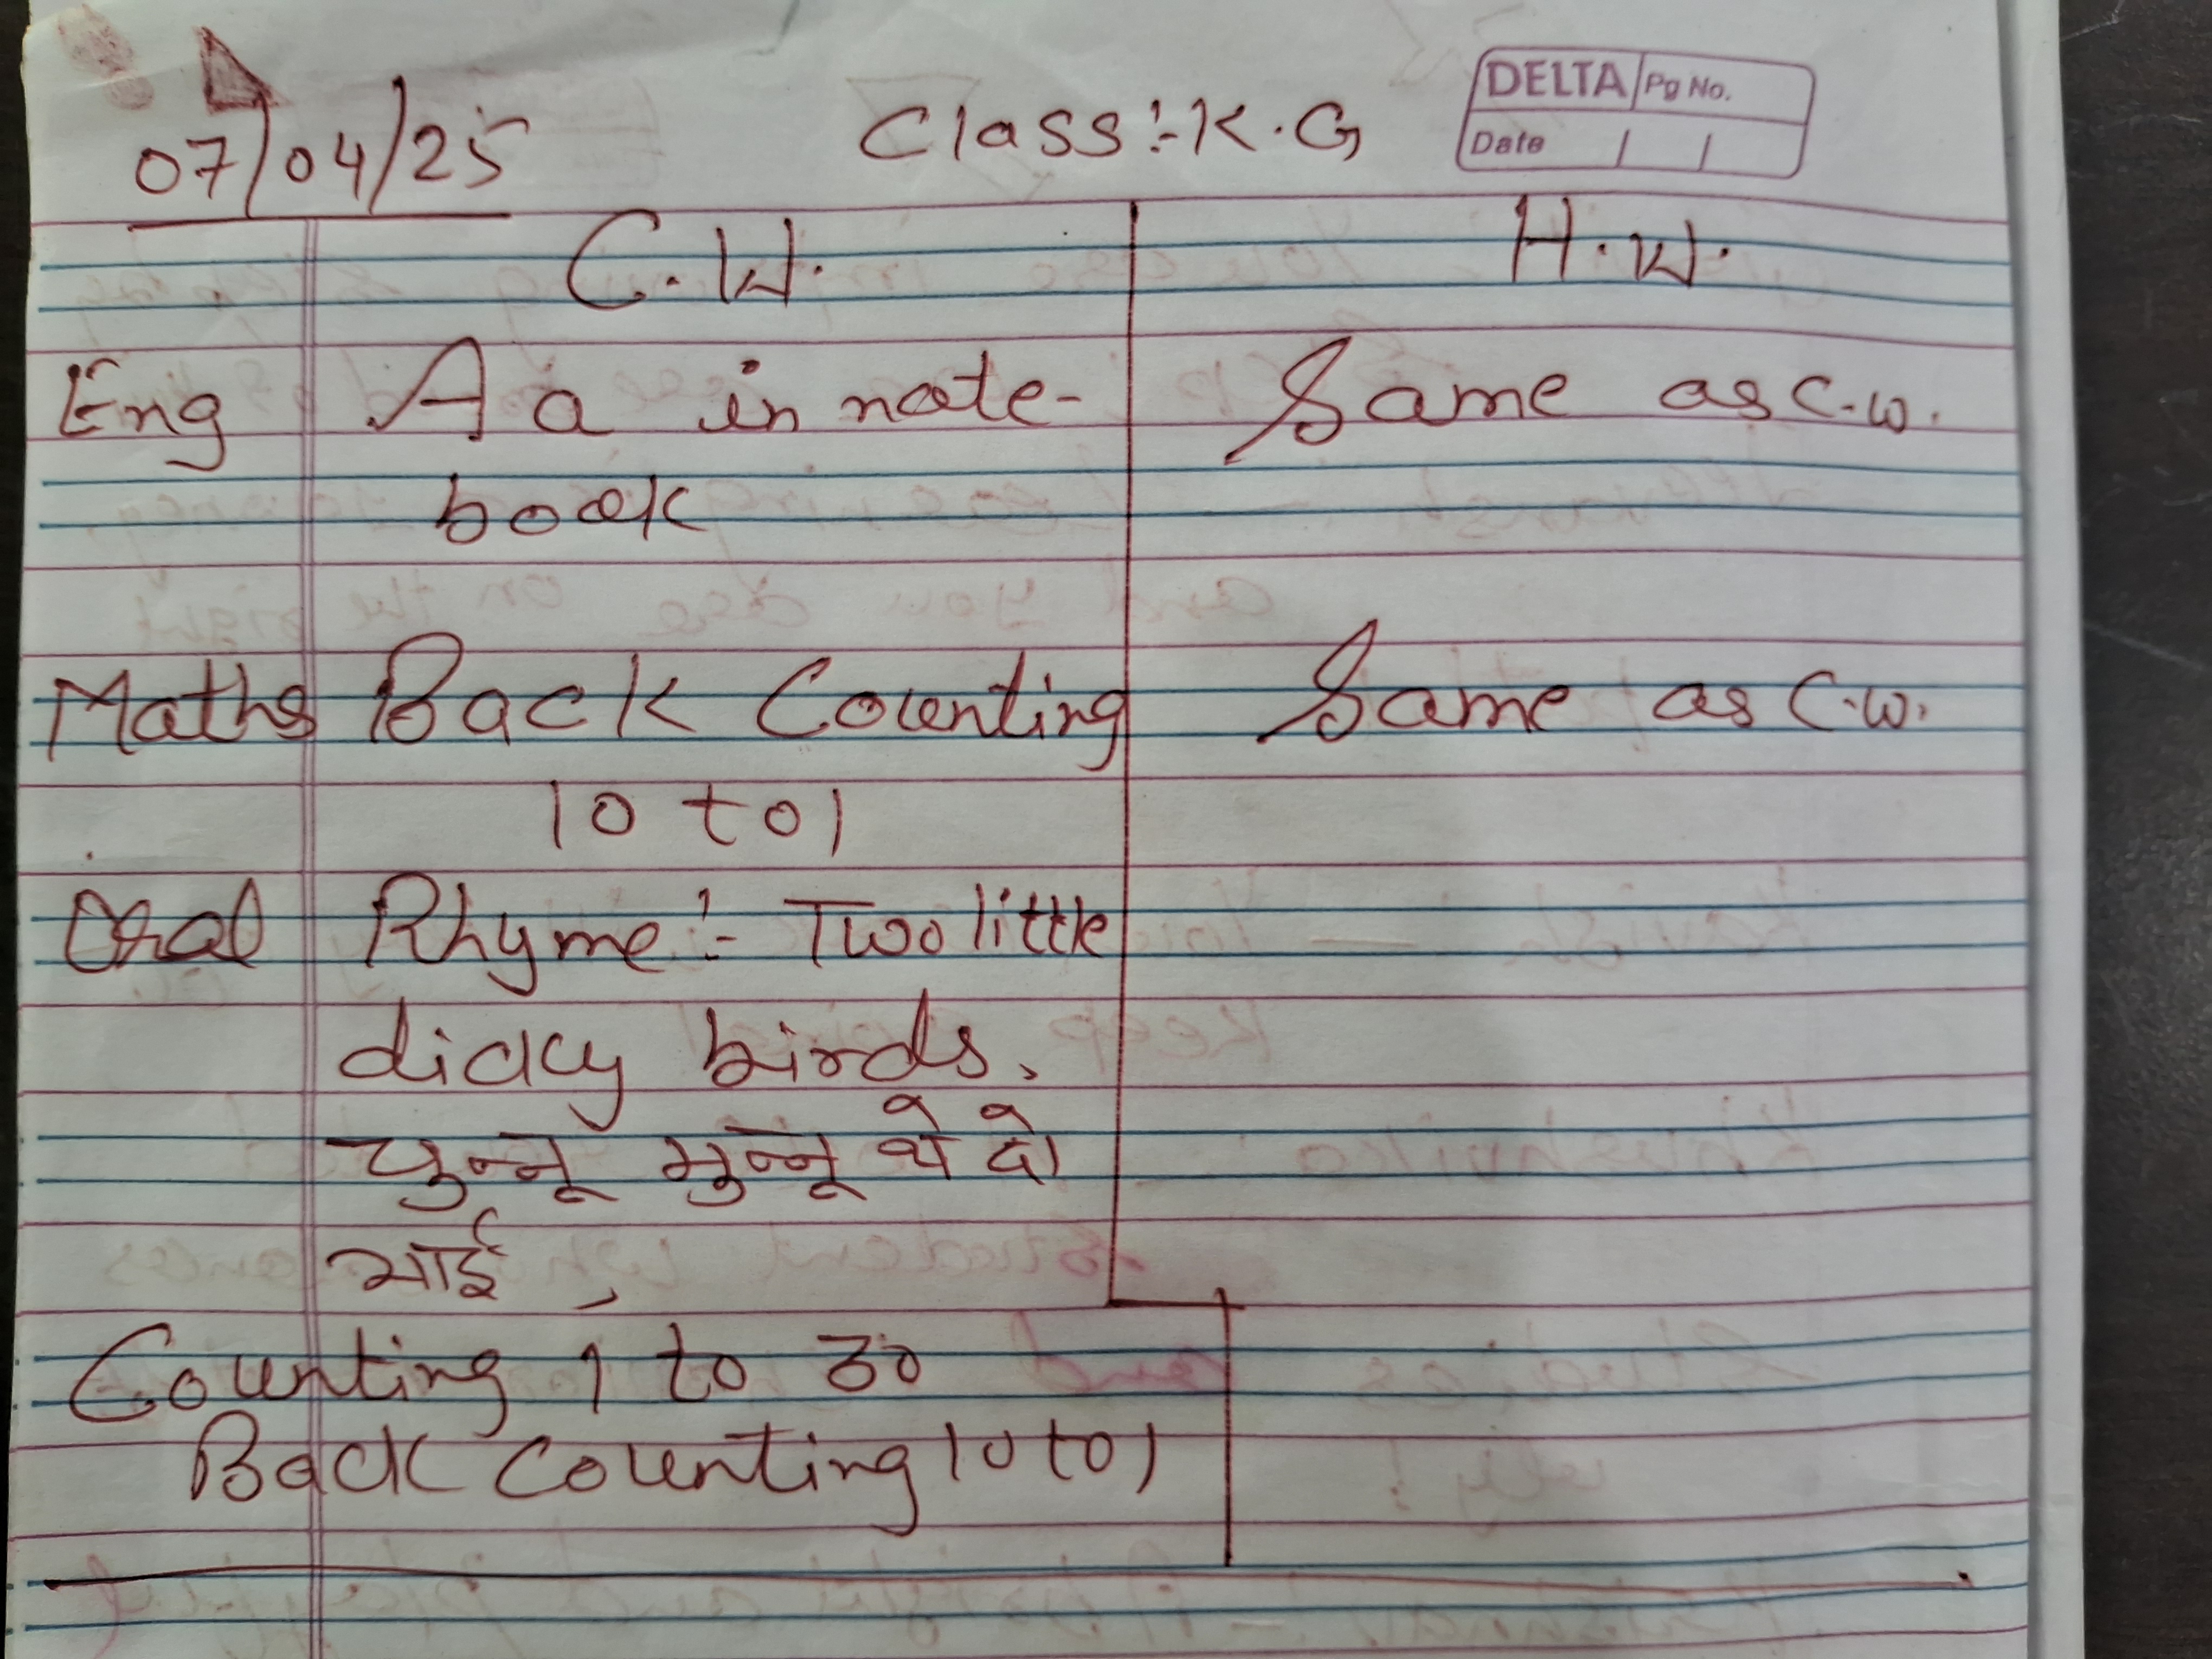 DELTA Pg No.
Date / /
07/04/25 Class:- K.G
C.W. H.W.
Eng Aa in note- Same as C.w.
book
Maths Back Counting Same as C.w.
10 to 1
Oral Rhyme:- Two little
dicky birds,
चुन्नू मुन्नू थे दो
भाई,
Counting 1 to 30
Back Counting 10 to 1